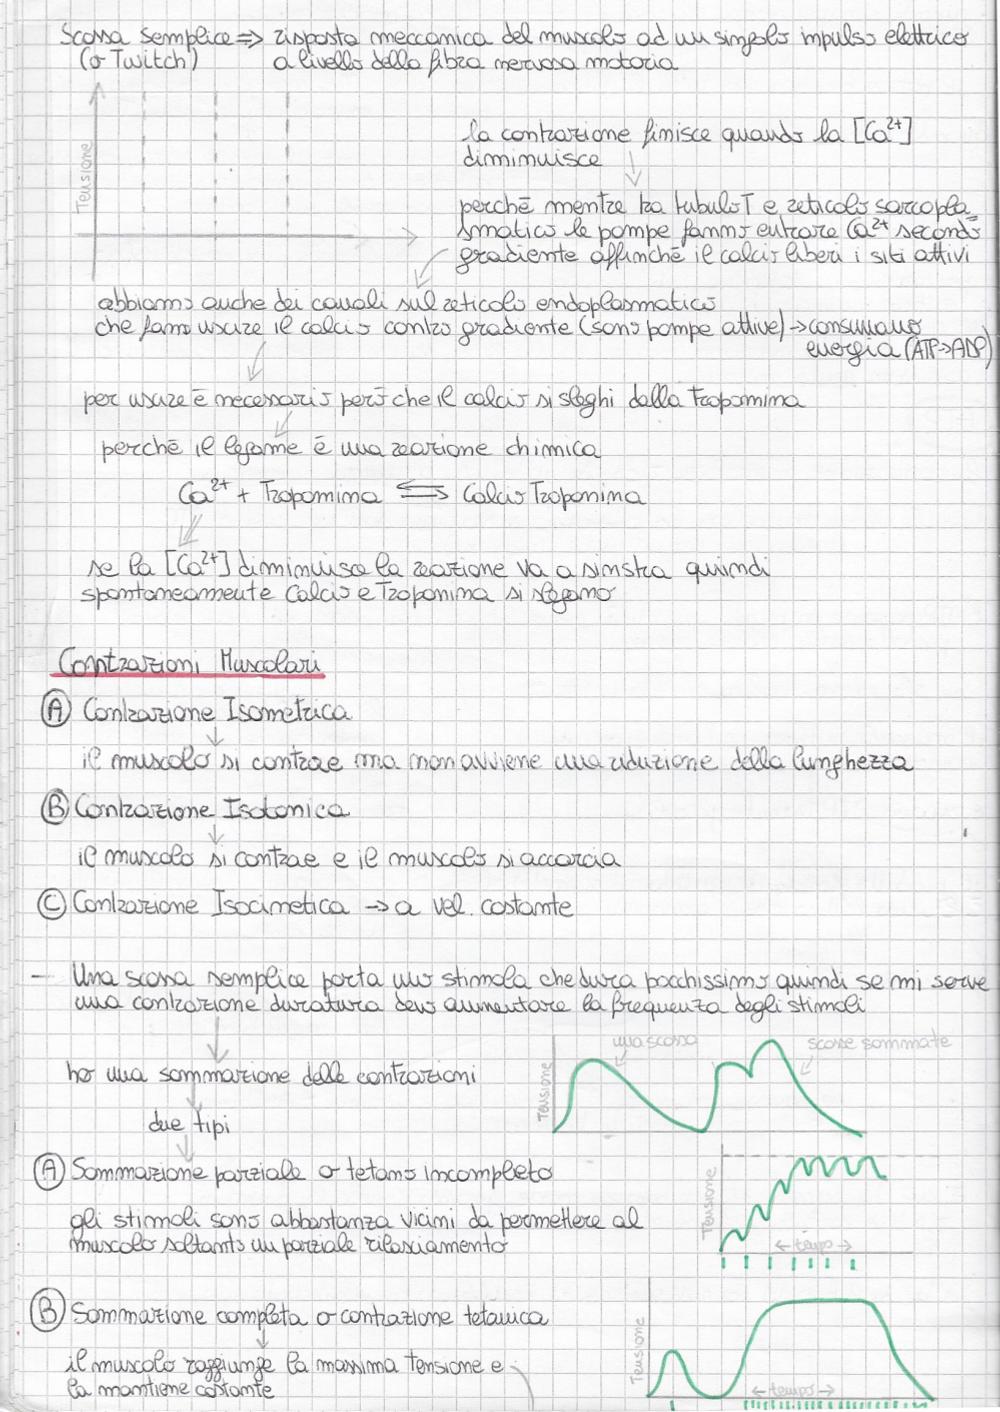 Scossa semplice => risposta meccanica del muscolo ad un singolo impulso elettrico
(o Twitch) a livello della fibra nervosa motoria
Tensione
la contrazione finisce quando la [Ca²⁺]
diminuisce
perchē mentre tra tubulo T e reticolo sarcopla-
smatico le pompe fanno entrare Ca²⁺ secondo
gradiente affinchē il calcio liberi i siti attivi
abbiamo anche dei canali sul reticolo endoplasmatico
che fanno uscire il calcio contro gradiente (sono pompe attive) → consumano
energia (ATP→ADP)
per uscire ē necessario perō che il calcio si sleghi dalla Troponina
perchē il legame ē una reazione chimica
Ca²⁺ + Troponina ⇆ Calcio Troponina
se la [Ca²⁺] diminuisce la reazione va a sinistra quindi
spontaneamente Calcio e Troponina si slegano
Contrazioni Muscolari
(A) Contrazione Isometrica
il muscolo si contrae ma non avviene una riduzione della lunghezza
(B) Contrazione Isotonica
il muscolo si contrae e il muscolo si accorcia
(C) Contrazione Isocinetica → a vel. costante
— Una scossa semplice porta uno stimola che dura pocchissimo quindi se mi serve
una contrazione duratura devo aumentare la frequenza degli stimoli
una scossa
scosse sommate
Tensione
ho una sommazione delle contrazioni
due tipi
(A) Sommazione parziale o tetano incompleto
gli stimoli sono abbastanza vicini da permettere al
muscolo soltanto un parziale rilasciamento
Tensione
← tempo →
(B) Sommazione completa o contrazione tetanica
il muscolo raggiunge la massima tensione e
la mantiene costante
Tensione
← tempo →